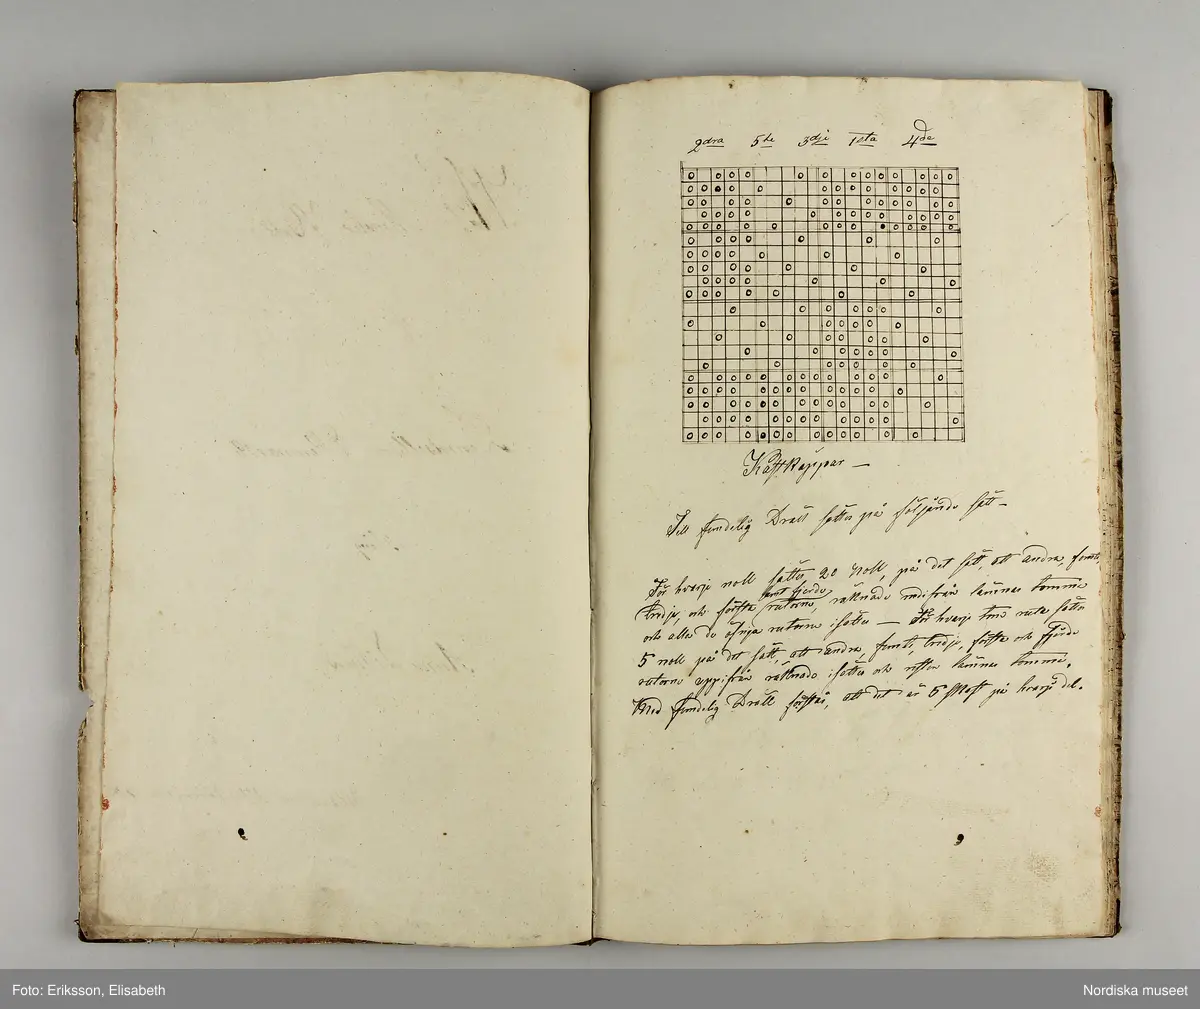 2dra 5te 3dje 1sta 4de
Käftkäppar —
Till femdelig Dräll sättes på följande sätt —
För hvarje noll sättes 20 Noll, på det sätt, att andra, femte,
samt fjerde
tredje, och första rutorne, räknade nedifrån lämnas tomme
och alla de öfriga rutorne isättes — För hvarje tom ruta sättes
5 noll på det sätt, att andra, femte, tredje, första och fjerde
rutorne uppifrån räknade isättes och resten lämnas tomme.
Med femdelig Dräll förstås, att det är 5 Skaft på hvarje del.
Foto: Eriksson, Elisabeth
Nordiska museet